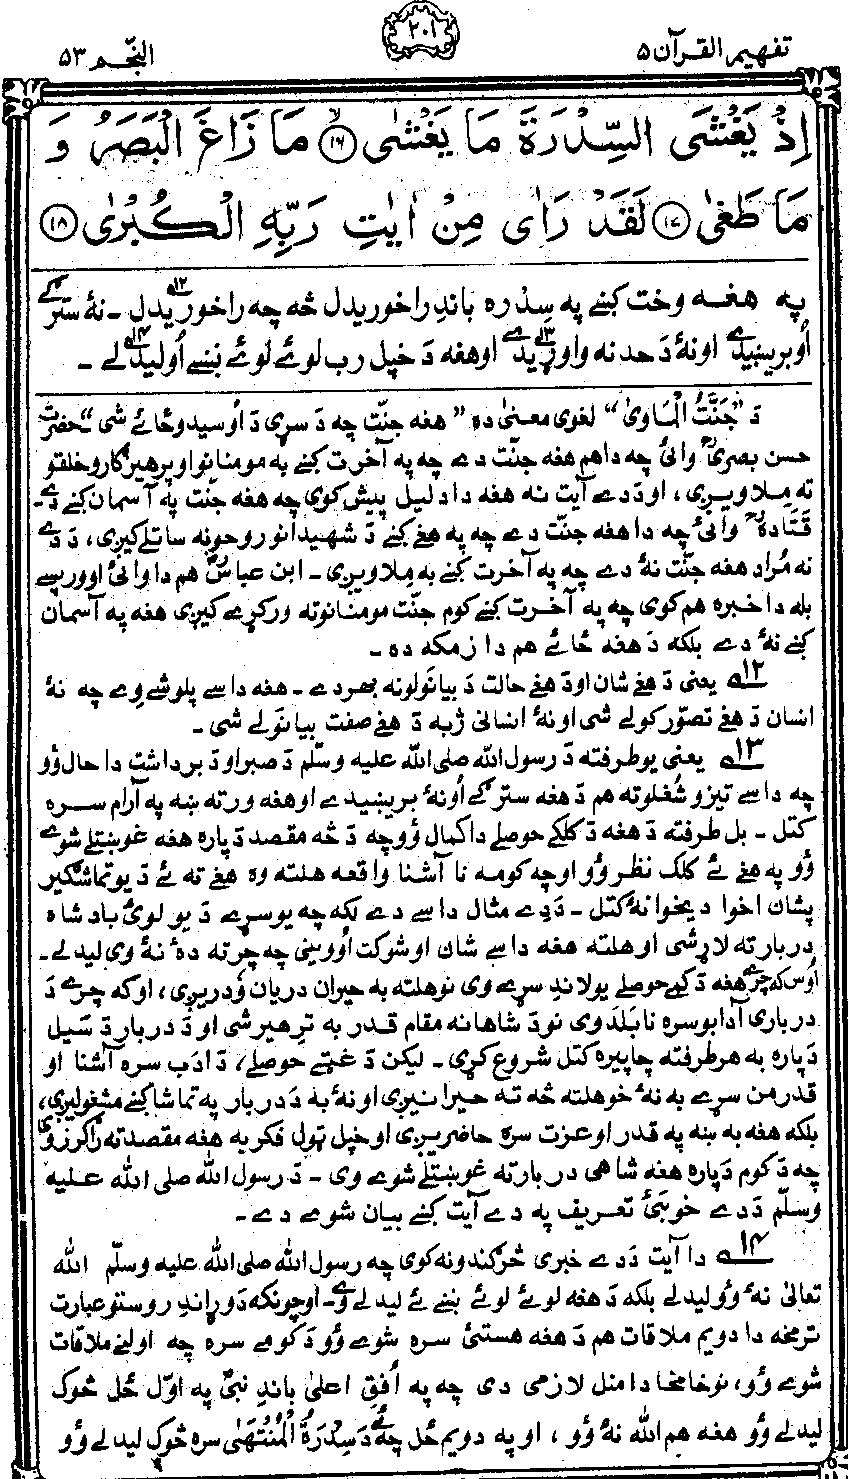 تفهيم القرآن ۵
۲۰۱
النّجم ۵۳
اِذْ يَغْشَى السِّدْرَةَ مَا يَغْشٰى ۱۶ مَا زَاغَ الْبَصَرُ وَ
مَا طَغٰى ۱۷ لَقَدْ رَاٰى مِنْ اٰيٰتِ رَبِّهِ الْكُبْرٰى ۱۸
په هغه وخت کښے په سِدره باندِ راخوريدل څه چه راخوريدل ۱۲ ـ نهٔ سترګے
اُوبرېښيدے اونهٔ دَ حد نه واوړيدے ۱۳ اوهغه دَ خپل رب لوئے لوئے نښے اُوليدلے ۱۴ ـ
دَ "جَنَّتُ الْمَاوٰى" لغوی معنیٰ ده "هغه جنّت چه دَ سړی دَ اُوسيدو ځائے شی" حضرت
حسن بصریؒ وائی چه داهم هغه جنّت دے چه په آخرت کښے به مومنانو اوپرهيزګارو خلقو
ته مِلاويږی، اودَدے آيت نه هغه دا دليل پيش کوی چه هغه جنّت په آسمان کښے دے ـ
قتادهؒ وائی چه دا هغه جنّت دے چه په هغے کښے دَ شهيدانو روحونه ساتلے کيږی، دَدے
نه مُراد هغه جنّت نهٔ دے چه په آخرت کښے به مِلاويږی ـ ابن عباسؓ هم دا وائی اوورسے
بله دا خبره هم کوی چه په آخرت کښے کوم جنّت مومنانوته ورکړے کيږی هغه په آسمان
کښے نهٔ دے بلکه دَ هغه ځائے هم دا زمکه ده ـ
۱۲ یعنی دَ هغے شان اودَ هغے حالت دَ بيانولونه بهر دے ـ هغه داسے پلوشے وے چه نهٔ
انسان دَ هغے تصوّر کولے شی اونهٔ انسانی ژبه دَ هغے صفت بيانولے شی ـ
۱۳ یعنی يوطرفته دَ رسول الله صلی الله عليه وسلّم دَ صبر اودَ برداشت دا حال ؤو
چه داسے تيزو شُغلوته هم دَ هغه سترګے اُونهٔ برېښيدے اوهغه ورته ښه په آرام سره
کتل ـ بل طرفته دَ هغه دَ کلکے حوصلے دا کمال ؤوچه دَ څه مقصد دَپاره هغه غوښتلے شوے
ؤو په هغے ئے کلک نظر ؤو اوچه کومه نا آشنا واقعه هلته وه هغے ته ئے دَ يوتماشګير
پشان اخوا ديخوا نهٔ کتل ـ دَدے مثال داسے دے لکه چه يوسړے دَ يو لوئی بادشاه
دربار ته لاړشی اوهلته هغه داسے شان اوشوکت اُووينی چه چرته دهٔ نهٔ وی ليدلے ـ
اُوس که چرے هغه دَ کچے حوصلے يولاندِ سړے وی نوهلته به حيران دريان وُدريږی، اوکه چرے دَ
درباری آدابو سره نابلد وی نودَ شاهانه مقام قدر به ترهيرشی اودَ دربار دَ سَيل
دَپاره به هرطرفته چاپيره کتل شروع کړی ـ ليکن دَ غټے حوصلے، دَ ادَب سره آشنا او
قدرمن سړے به نهٔ خوهلته څه ته حيرانيږی اونهٔ به دَ دربار په تماشا کښے مشغوليږی،
بلکه هغه به ښه په قدر اوعزت سره حاضريږی اوخپل ټول فکر به هغه مقصدته راګرزوی
چه دَ کوم دَپاره هغه شاهی دربارته غوښتلے شوے وی ـ دَ رسول الله صلی الله عليه
وسلّم دَدے خوبئ تعريف په دے آيت کښے بيان شوے دے ـ
۱۴ دا آيت دَدے خبری څرګندونه کوی چه رسول الله صلی الله عليه وسلّم الله
تعالیٰ نهٔ ؤوليدلے بلکه دَ هغه لوئے لوئے نښے ئے ليدلے وے ـ اوچونکه دَ وړاندِ روستو عبارت
ترمخه دا دويم ملاقات هم دَ هغه هستئ سره شوے ؤو دَ کومے سره چه اولنے ملاقات
شوے ؤو، نوخامخا دا منل لازمی دی چه په اُفقِ اعلیٰ باندِ نبیؐ په اوّل ځل څوک
ليدلے ؤو هغه هم الله نهٔ ؤو، اوپه دويم ځل چه ئے دَ سِدْرَةُ الْمُنْتَهٰى سره څوک ليدلے ؤو